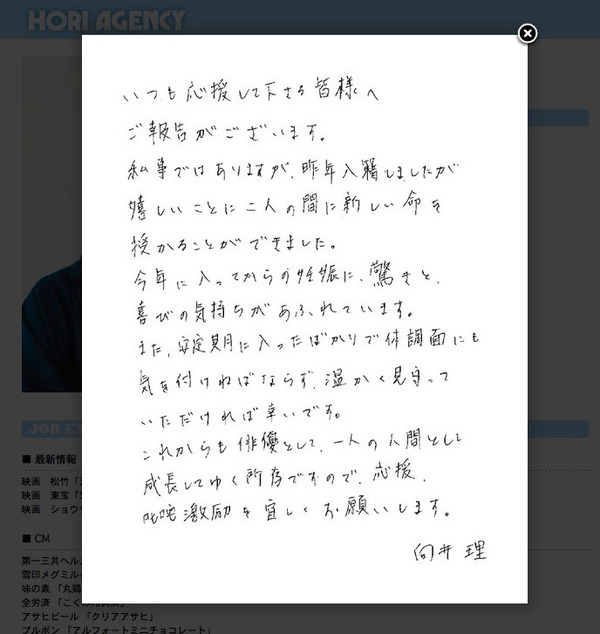 HORI AGENCY
いつも応援して下さる皆様へ
ご報告がございます。
私事ではありますが、昨年入籍しましたが
嬉しいことに二人の間に新しい命を
授かることができました。
今年に入ってからの妊娠に、驚きと、
喜びの気持ちがあふれています。
また、安定期に入ったばかりで体調面にも
気を付けねばならず、温かく見守って
いただければ幸いです。
これからも俳優として、一人の人間として
成長してゆく所存ですので、応援、
叱咤激励を宜しくお願いします。
向井 理
JOB
■ 最新情報
映画 松竹「
映画 東宝「
映画 ショウ
■ CM
第一三共ヘル
雪印メグミル
味の素「丸鶏
全労済「こくみん共済」
アサヒビール「クリアアサヒ」
ブルボン「アルフォートミニチョコレート」